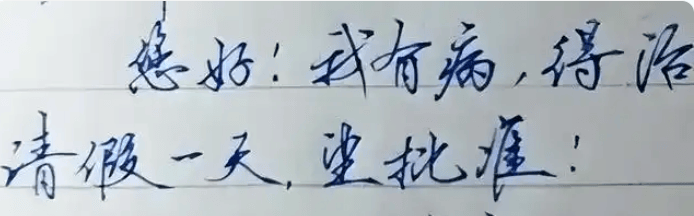 您好！我有病，得治
请假一天，望批准！